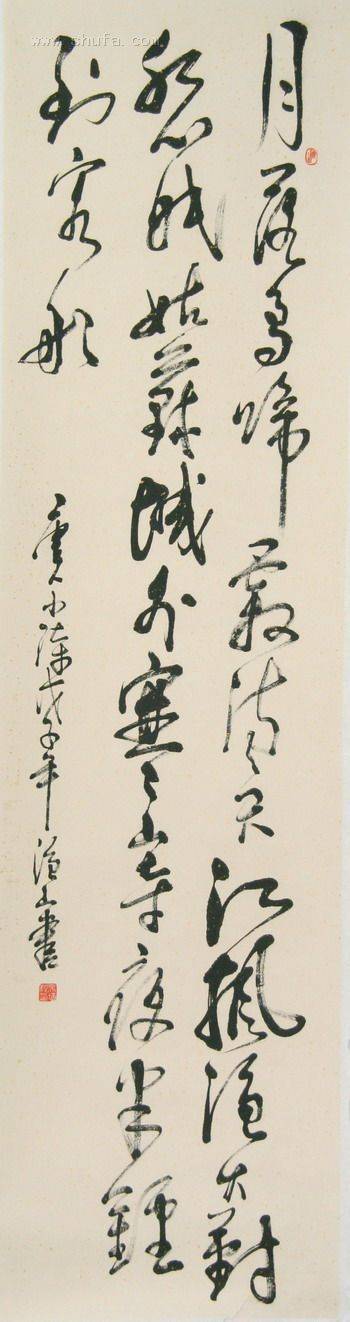 www.shufa.com
月落烏啼霜滿天江楓漁火對
愁眠姑蘇城外寒山寺夜半鐘
到客船
戊子年 書